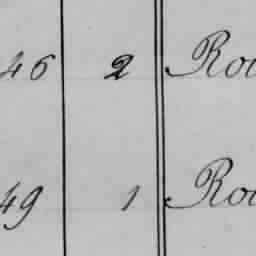 46 2 Roc
49 1 Roc